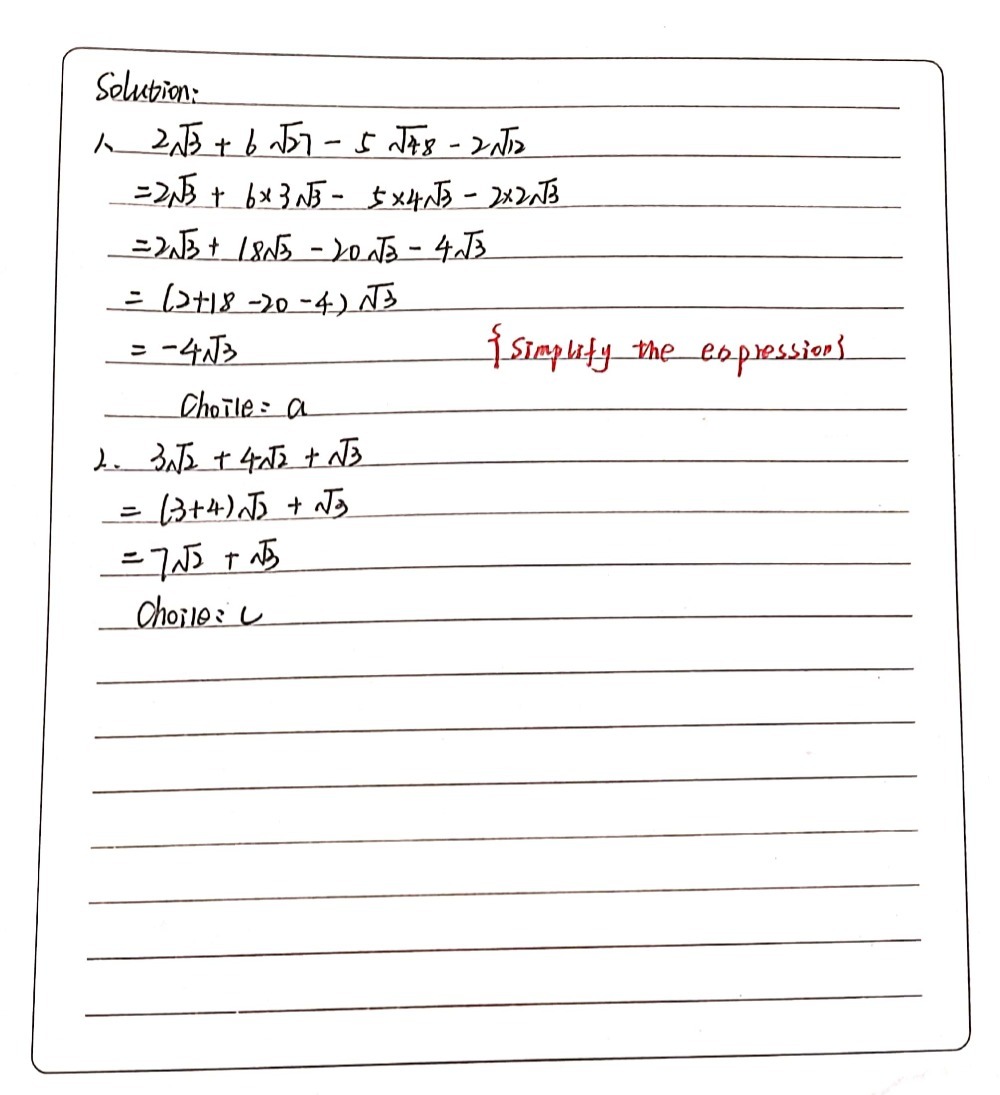 Solution:
1. 2√3 + 6√27 - 5√48 - 2√12
=2√3 + 6×3√3 - 5×4√3 - 2×2√3
=2√3 + 18√3 - 20√3 - 4√3
= (2+18-20-4)√3
= -4√3 {Simplify the expression}
Choice: a
2. 3√2 + 4√2 + √3
= (3+4)√2 + √3
=7√2 + √3
Choice: C